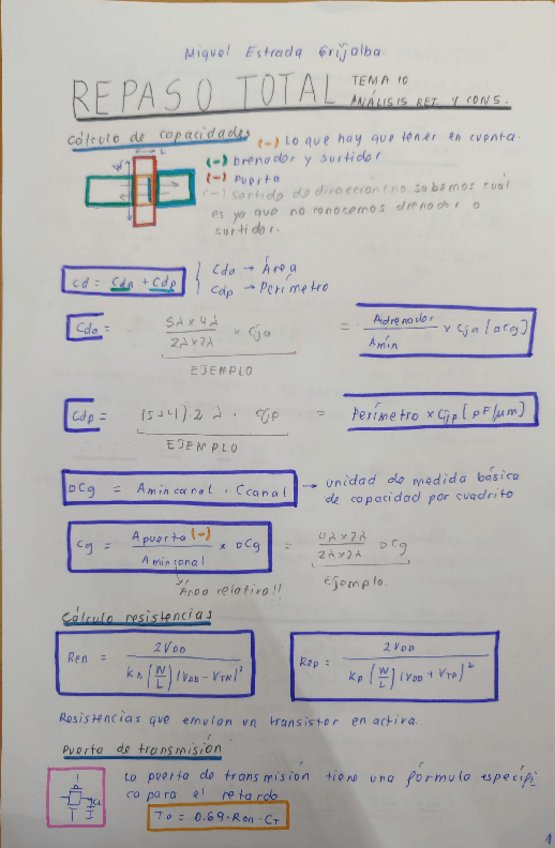 Miguel Estrada Grijalba.
REPASO TOTAL TEMA 10
ANÁLISIS RET. Y CONS.
Cálculo de capacidades (-) Lo que hay que tener en cuenta.
(-) Drenador y surtidor
(-) Puerta
(-) Sentido de dirección (no sabemos cuál
es ya que no conocemos drenador o
surtidor.
L
W
Cd = Cda + Cdp
Cda → Área
Cdp → Perímetro
Cda = 5λ x 4λ / 2λ x 2λ x Cja = Adrenador / Amín x Cja [□Cg]
EJEMPLO
Cdp = (5+4).2 λ . Cjp = Perímetro x Cjp [pF/μm]
EJEMPLO
□Cg = Amincanal . Ccanal → unidad de medida básica
de capacidad por cuadrito
Cg = Apuerta (-) / Amincanal x □Cg = 4λ x 2λ / 2λ x 2λ □Cg
Área relativa!! Ejemplo.
Cálculo resistencias
Ren = 2VDD / Kn (W/L) (VDD - VTN)²
Rep = 2VDD / Kp (W/L) (VDD + VTP)²
Resistencias que emulan un transistor en activa.
Puerta de transmisión
La puerta de transmisión tiene una fórmula específi
ca para el retardo
To = 0.69 . Ron . CT
1